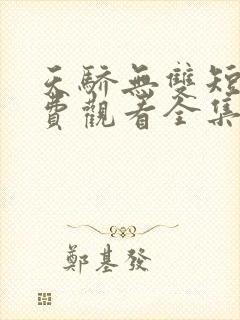 天驕無雙短
費觀看全集
鄭基發